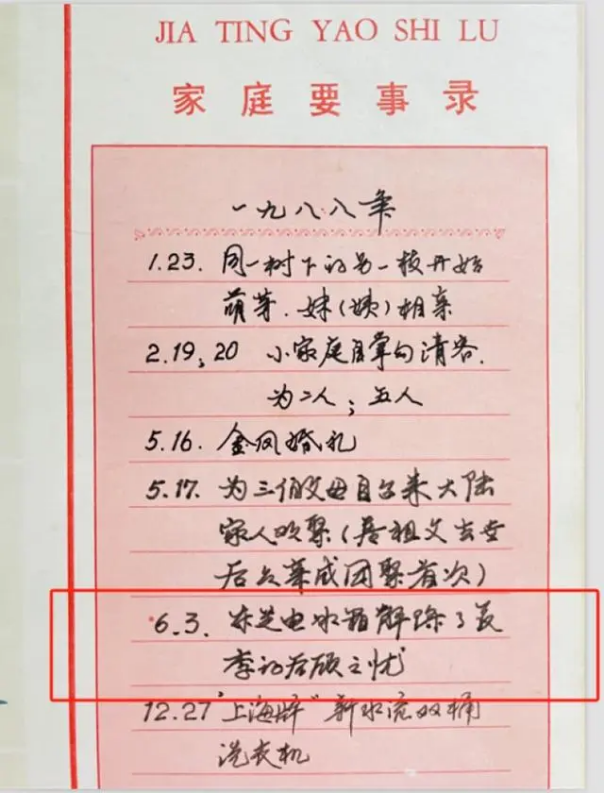 JIA TING YAO SHI LU
家庭要事录
一九八八年
1.23. 同一树下的另一枝开始
萌芽.妹(姨)相亲
2.19,20 小家庭自掌勺请客.
为二人；五人
5.16. 金凤婚礼
5.17. 为三伯父母自台来大陆
家人欢聚(祖父去世
后团聚首次)
6.3. 东芝电冰箱解除了夏
季的后顾之忧
12.27 "上海牌"新水流双桶
洗衣机